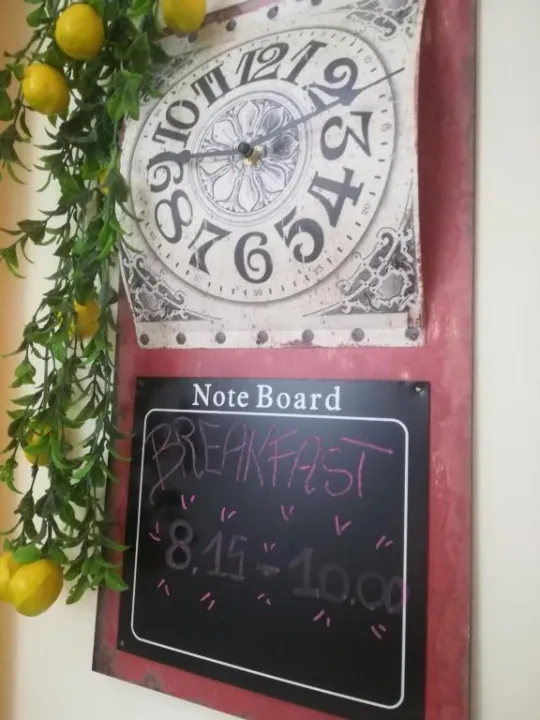 12
1
2
3
4
5
6
7
8
9
10
11
Note Board
BREAKFAST
8.15 - 10.00